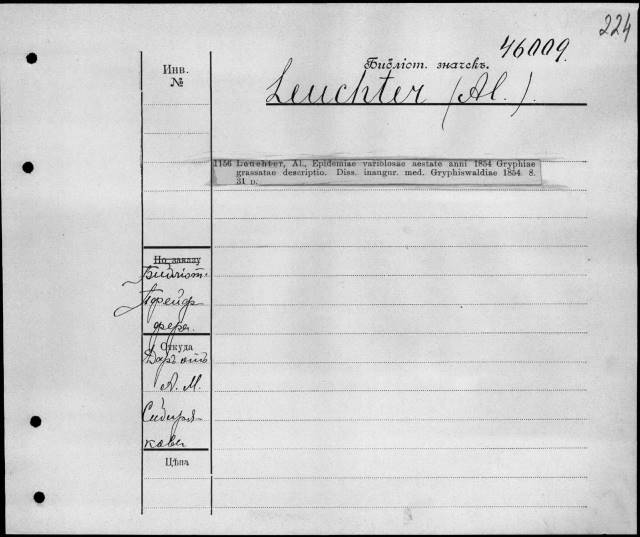 224
46009.
Библіот. значекъ.
Инв.
№
Leuchter (Al.).
1156 Leuchter, Al., Epidemiae variolosae aestate anni 1854 Gryphiae
grassatae descriptio. Diss. inaugur. med. Gryphiswaldiae 1854. 8.
31 p.
По заказу
Библіот.
Пфейф
фера.
Откуда
Даръ отъ
А. М.
Сибиря-
кова
Цѣна